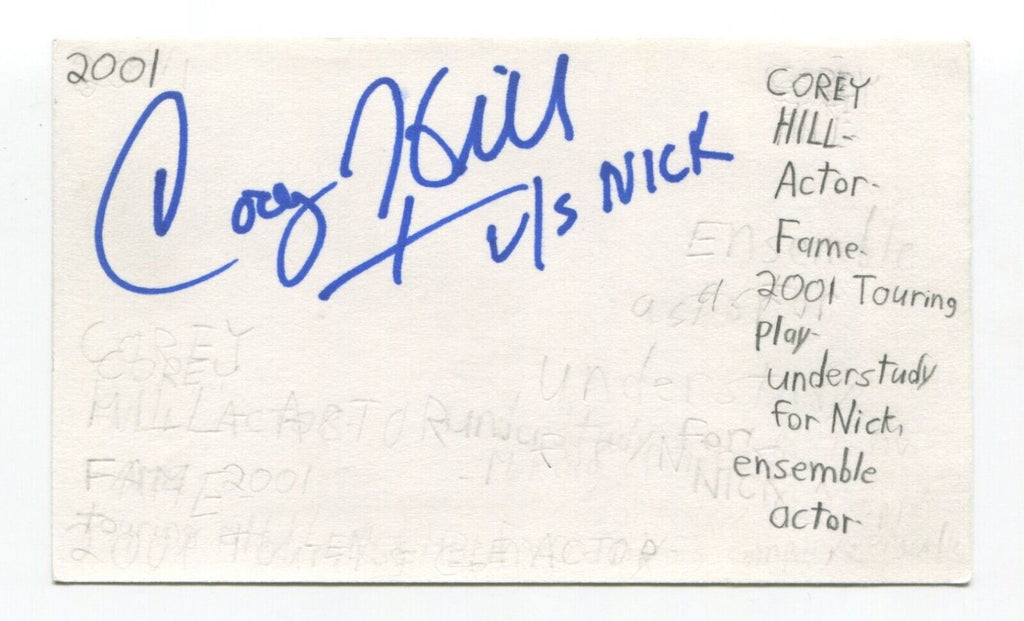 2001
Corey Hill
u/s NICK
COREY
HILL-
Actor-
Fame-
2001 Touring
play-
understudy
for Nick,
ensemble
actor
Ensemble
COREY
COREY
FAME 2001
NICK
ACTOR